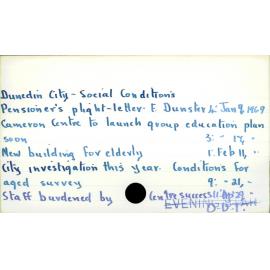 Dunedin City - Social Conditions
Pensioner's plight - letter. E. Dunster 4: Jan 9, 1969
Cameron Centre to launch group education plan
soon 3: - 17, -
New building for elderly 1: Feb 11, -
City investigation this year. Conditions for
aged survey 9: - 21, -
Staff burdened by Centre success 11: Ap 29
EVENING STAR
O.D.T.